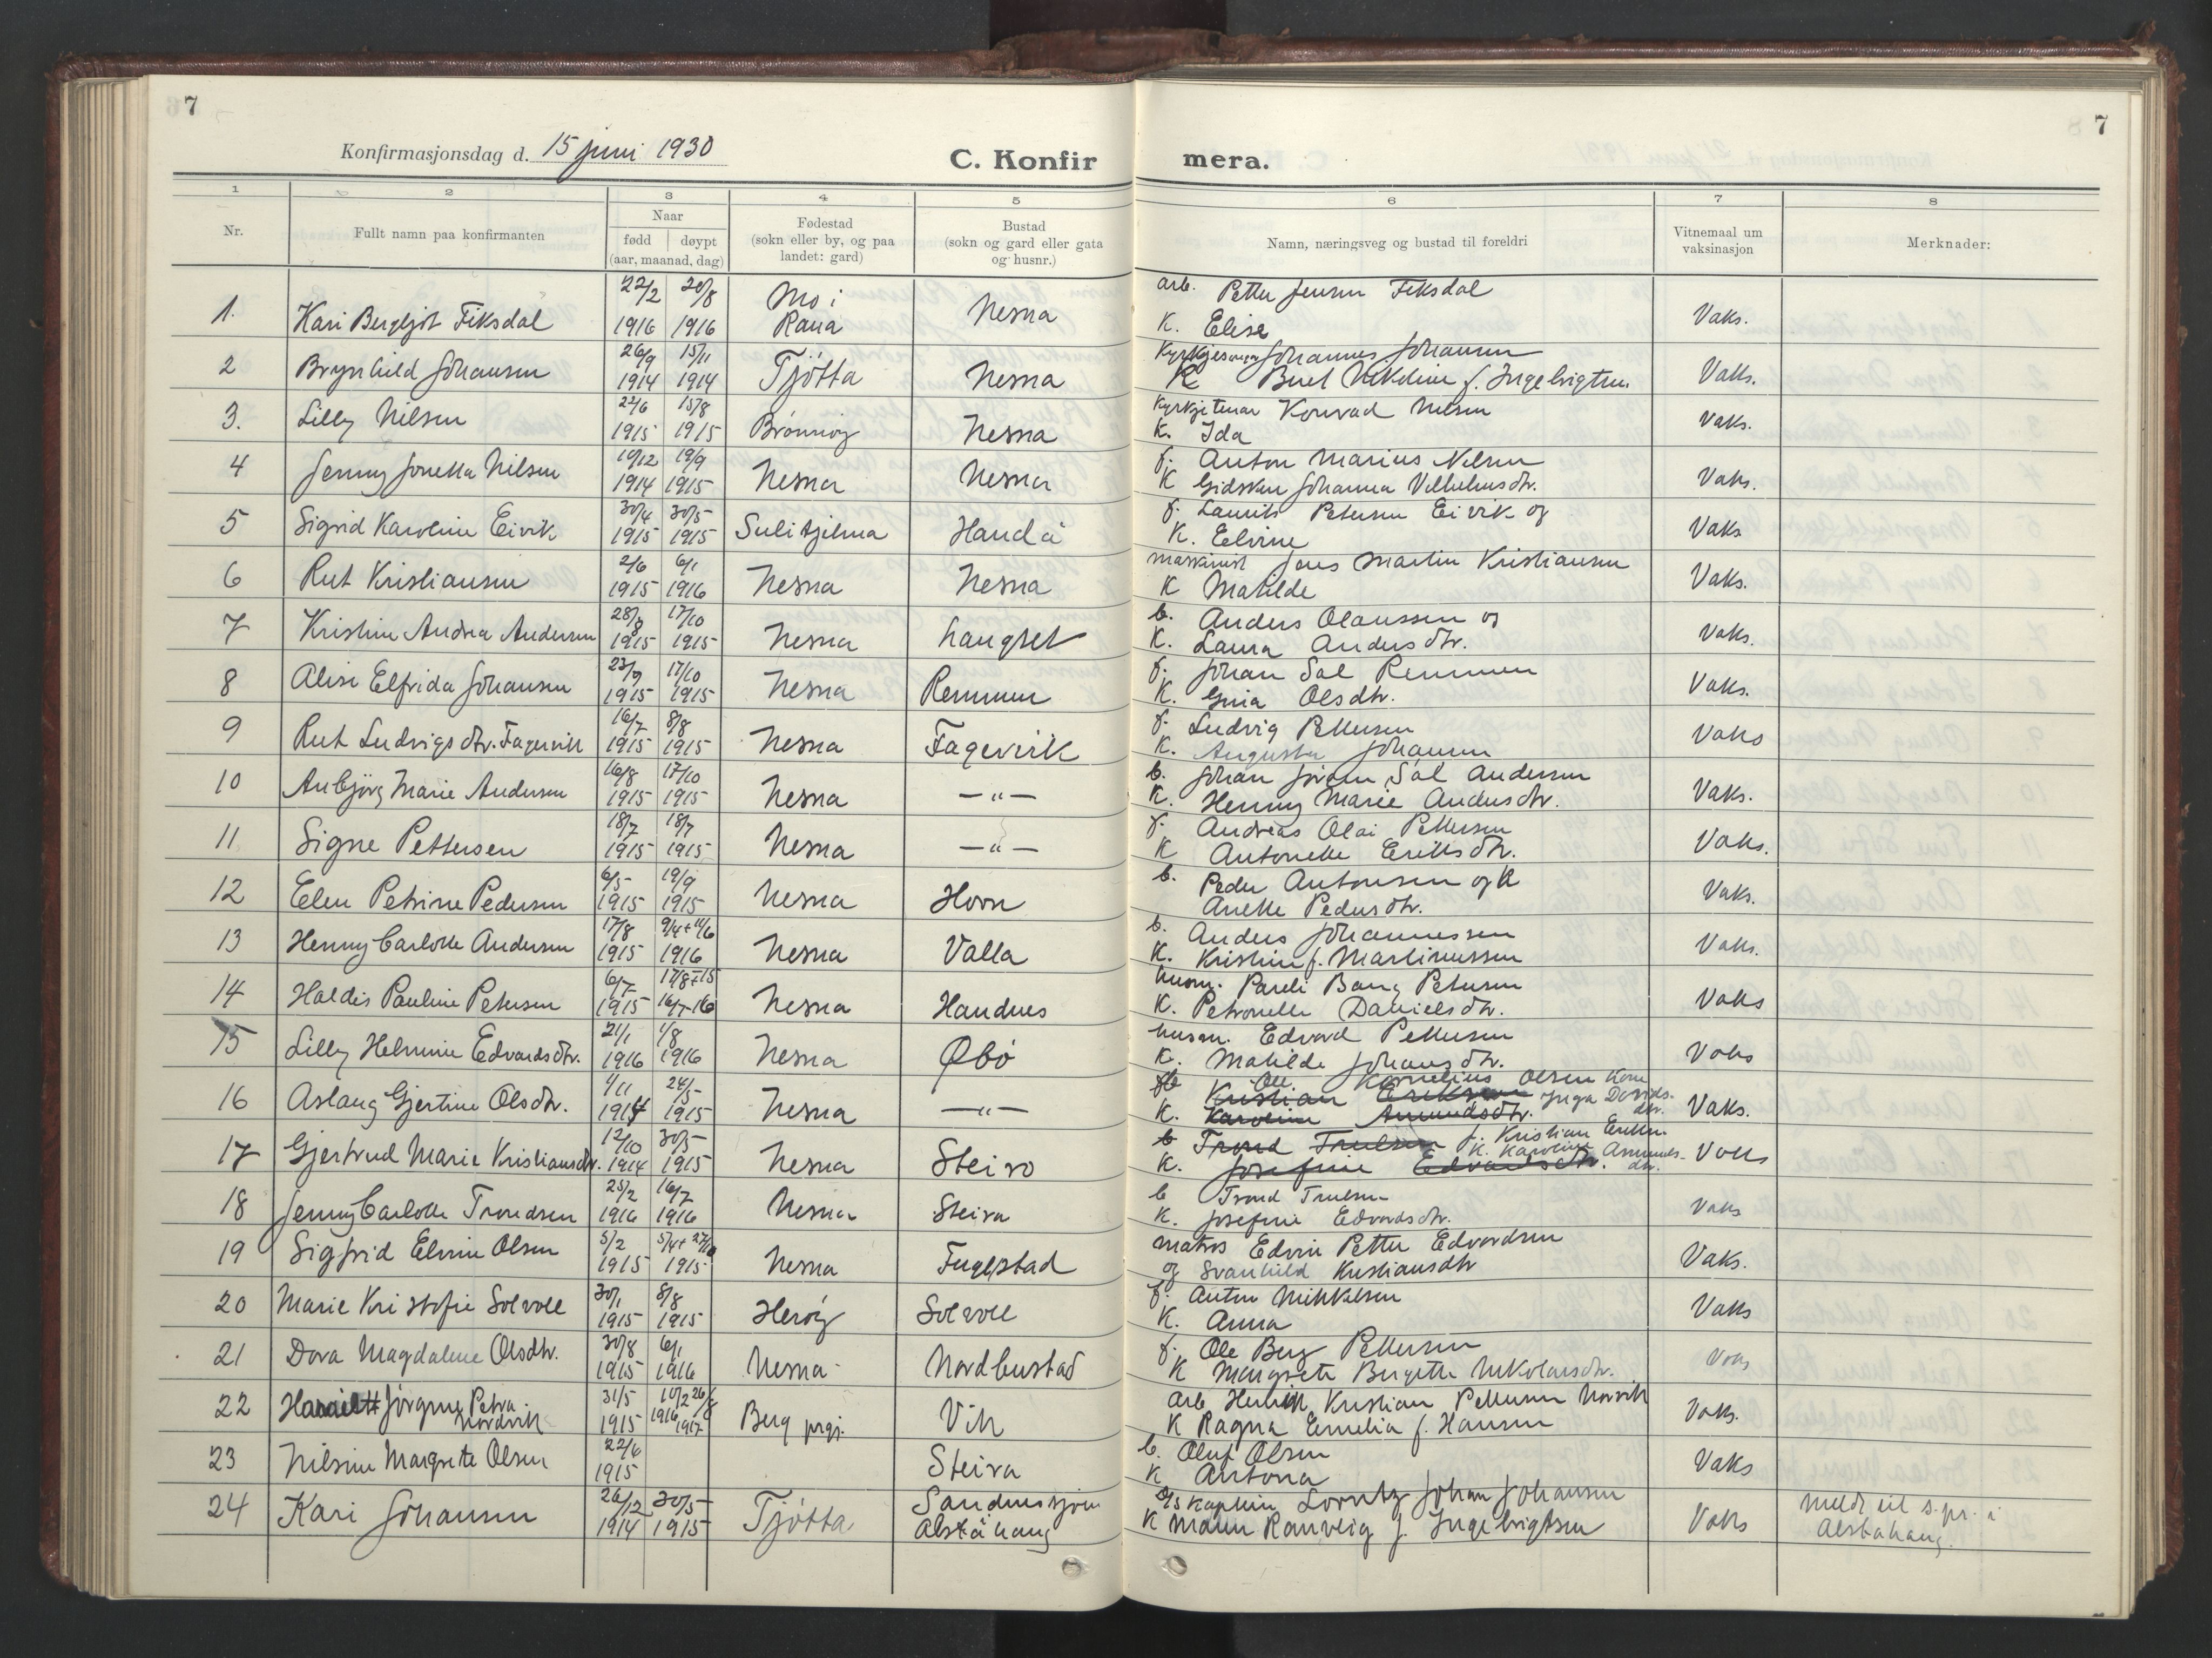 7
Konfirmasjonsdag d. 15 juni 1930
C. Konfirmera.
7
1 2 3 4 5 6 7 8
Nr.
Fullt namn paa konfirmanten
Naar
fødd døypt
(aar, maanad, dag)
Fødestad
(sokn eller by, og paa
landet: gard)
Bustad
(sokn og gard eller gata
og husnr.)
Namn, næringsveg og bustad til foreldri
Vitnemaal um
vaksinasjon
Merknader:
1. Kari Bergljot Fiksdal 22/2 1916 20/8 1916 Mo i Rana Nesna arb. Petter Jensen Fiksdal
K. Elise Vaks.
2 Brynhild Johansen 26/9 1914 15/11 1914 Tjøtta Nesna Johannes Johansen
K f. Ingebrigtsen Vaks.
3. Lilly Nilsen 22/6 1915 15/8 1915 Brønnøy Nesna kyrkjetenar Konrad Nilsen
K. Ida Vaks.
4 Jenny Jonetta Nilsen 10/12 1914 19/9 1915 Nesna Nesna f. Anton Marius Nilsen
K Gidsken Johanna Vilhelmsdtr. Vaks.
5 Sigrid Karoline Eivik 30/4 1915 30/5 1915 Sulitjelma Handå f. Laurits Petersen Eivik og
K. Elvine Vaks
6 Rut Kristiansen 2/6 1915 6/1 1916 Nesna Nesna maskinist Jens Martin Kristiansen
K Matilde Vaks.
7 Kristine Andrea Andersen 28/8 1915 17/10 1915 Nesna Langset b. Anders Olaussen og
K. Laura Andersdtr. Vaks.
8 Alise Elfrida Johansen 23/9 1915 17/10 1915 Nesna Remmen f. Johan Sal Remmen
K. Gina Olsdtr. Vaks.
9 Rut Ludvigsdtr. Fagervik 16/7 1915 8/8 1915 Nesna Fagervik f. Ludvig Pettersen
K. Augusta Johansen Vaks
10 Anbjørg Marie Andersen 16/8 1915 17/10 1915 Nesna —"— b. Johan Jørgen Sal Andersen
K. Henny Marie Andersdtr. Vaks.
11 Signe Pettersen 18/7 1915 18/7 1915 Nesna —"— f. Andreas Olai Pettersen
K Antonette Eriksdtr. Vaks.
12 Elen Petrine Pedersen 6/5 1915 19/9 1915 Nesna Horn b. Peder Antonsen og K
Anette Pedersdtr. Vaks.
13 Henny Carlotte Andersen 17/8 1915 9/4+11/6 1916 Nesna Valla b. Anders Johannessen
K. Kristine f. Martinussen Vaks.
14 Haldis Pauline Petersen 6/7 1915 17/8-15 16/7-16 Nesna Handnes husm. Pareli Bang Petersen
K. Petronelle Danielsdtr. Vaks
15 Lilly Helmine Edvardsdtr. 21/1 1916 1/8 1916 Nesna Øbø husm. Edvard Pettersen
K. Matilde Johansdtr. Vaks
16 Aslaug Gjertine Olsdtr. 4/11 1914 24/5 1915 Nesna —"— Ole Kornelius Olsen Kone
Kristian Eriksen Inga Davidsdtr.
K. Karoline Amundsdtr. Vaks.
17 Gjertrud Marie Kristiansdtr. 12/10 1914 30/5 1915 Nesna Steiro b Trond Trulsen f. Kristian Eriksen
K. Josefine Edvardsdtr. K. Karoline Asmundsdtr. Vaks
18 Jenny Carlotte Trondsen 25/2 1916 16/7 1916 Nesna Steira b Trond Trulsen
K. Josefine Edvardsdtr. Vaks
19 Sigfrid Elvine Olsen 5/2 1915 1915 Nesna Fuglstad matros Edvin Petter Edvardsen
og Svanhild Kristiansdtr Vaks.
20 Marie Kristofie Solvoll 30/1 1915 8/8 1915 Herøy Solvoll f. Anton Mikkelsen
K. Anna Vaks
21 Dora Magdalene Olsdtr. 30/8 1915 6/1 1916 Nesna Nordbustad f. Ole Berg Pettersen
K Margrete Bergitte Nikolaisdtr. Vaks
22 Jørgine Petra Nordvik 31/5 1915 10/2 1916 26/8 1917 Berg prgj. Vik arb Kristian Pettersen Norvik
K Ragna Emelia f. Hansen Vaks.
23 Nilsine Margrete Olsen 22/6 1915 Steira b. Oluf Olsen
K Antona Vaks
24 Kari Johansen 26/12 1914 30/5 1915 Tjøtta Sandnessjøen Alstahaug Lorntz Johan Johansen
K Ranveig f. Ingebrigtsen Vaks meldt til s.pr. i
Alstahaug.